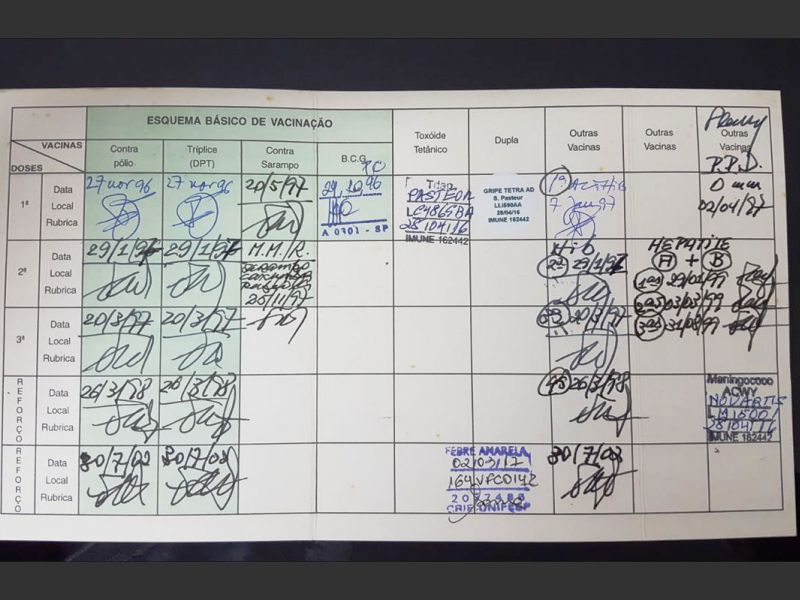 ESQUEMA BÁSICO DE VACINAÇÃO
VACINAS
DOSES
Contra pólio
Tríplice (DPT)
Contra Sarampo
B.C.G.
Toxóide Tetânico
Dupla
Outras Vacinas
Outras Vacinas
Outras Vacinas
P.P.D.
1ª
Data
Local
Rubrica
27 nov 96
27 nov 96
20/5/97
29, 10, 96
A 0701 - SP
PASTEUR
28/04/16
IMUNE 162442
GRIPE TETRA AD
S. Pasteur
28/04/16
IMUNE 162442
1ª
0 mm
02/04/97
2ª
Data
Local
Rubrica
29/1/97
29/1/97
M.M.R.
25/11/97
Hib
2ª 29/1/97
HEPATITE
A + B
1ª 29/01/99
2ª 03/03/99
3ª 31/08/99
3ª
Data
Local
Rubrica
20/3/97
20/3/97
20/3/97
REFORÇO
Data
Local
Rubrica
26/3/98
26/3/98
26/3/98
Meningococo
ACWY
NOVARTIS
28/04/16
IMUNE 162442
REFORÇO
Data
Local
Rubrica
30/7/02
30/7/02
FEBRE AMARELA
02/03/17
164VFC014Z
CRIE UNIFESP
30/7/02